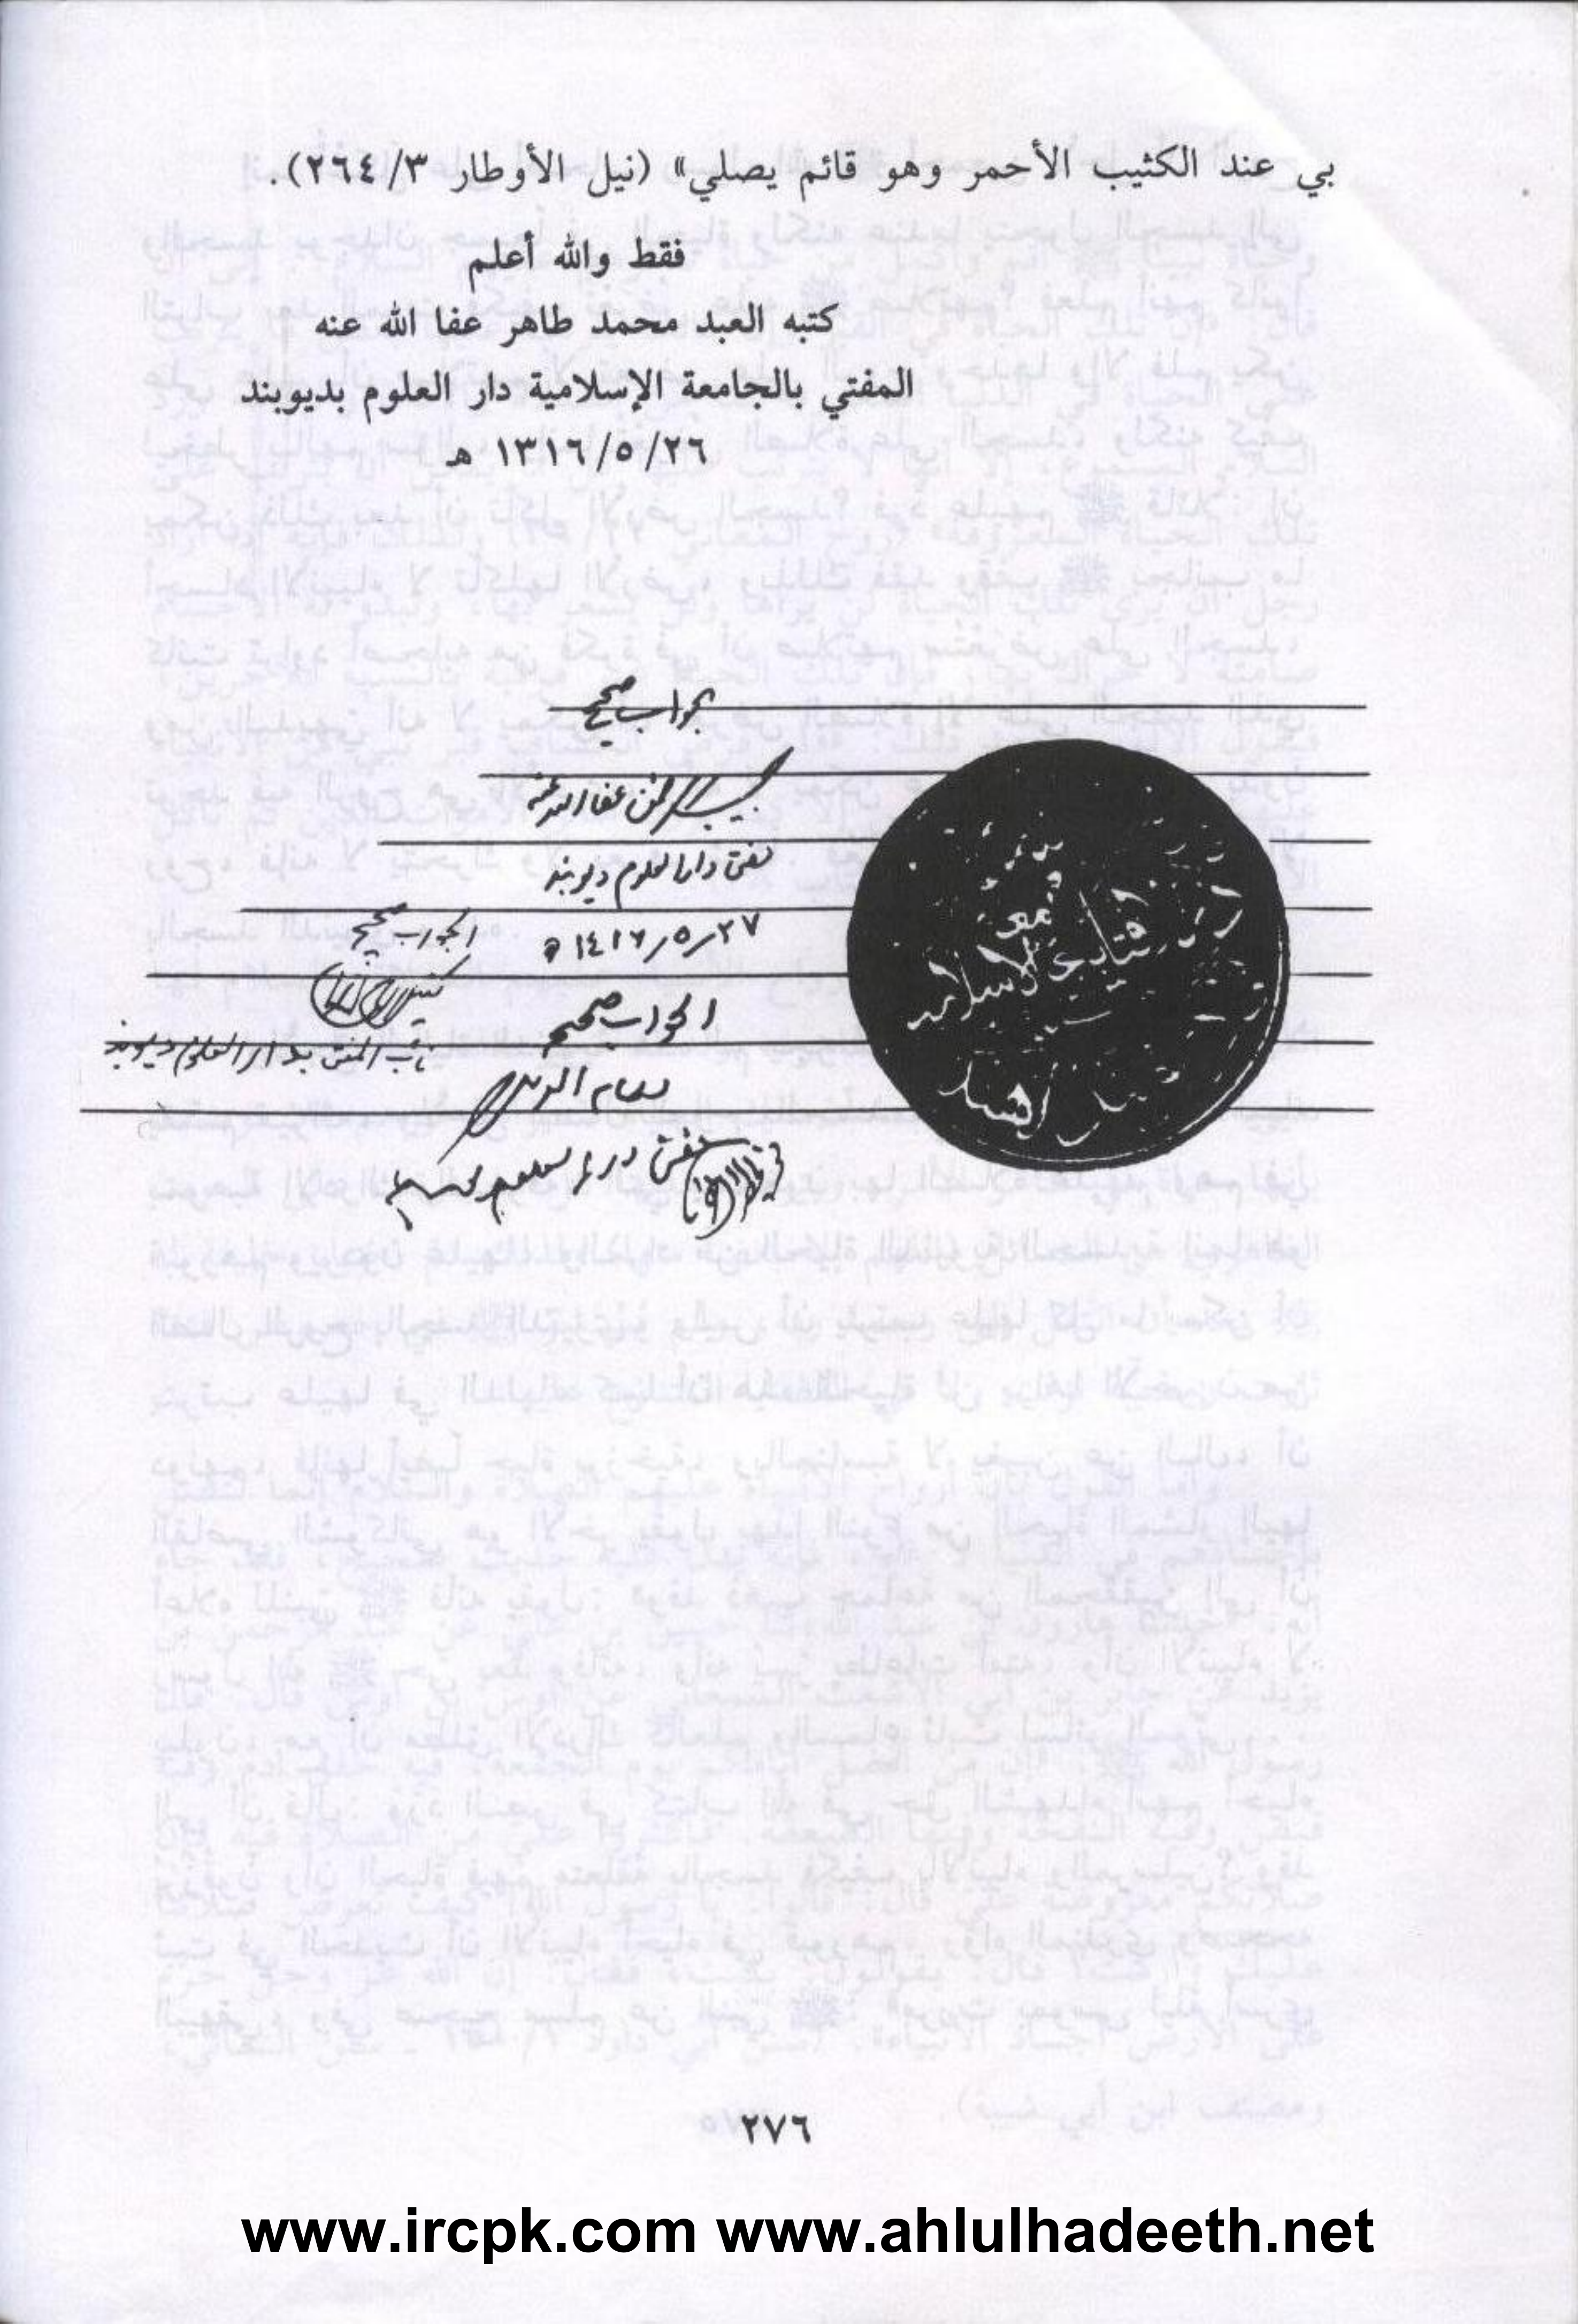 بي عند الكثيب الأحمر وهو قائم يصلي» (نيل الأوطار ٣/ ٢٦٤).
فقط والله أعلم
كتبه العبد محمد طاهر عفا الله عنه
المفتي بالجامعة الإسلامية دار العلوم بديوبند
٢٦/ ٥/ ١٣١٦ هـ
الجواب صحيح
عفا الله عنه
مفتی دارالعلوم دیوبند
٢٧/٥/١٤١٦ ھ
الجواب صحيح
نائب المفتي بدار العلوم ديوبند
الجواب صحيح
مفتی دارالعلوم
الهند
٢٧٦
www.ircpk.com www.ahlulhadeeth.net